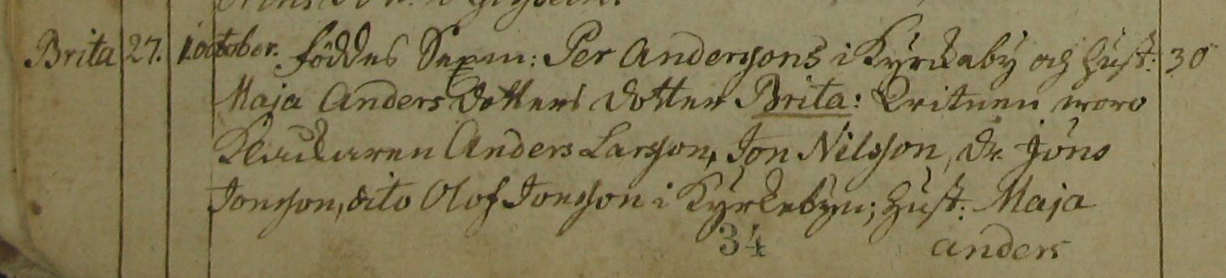 Brita 27. 1. october. föddes Sexm: Per Anderssons i Kyrkaby och Hust: 30
Maja Anders Dotters dotter Brita: Vitnen woro
Klockaren Anders Larsson, Jon Nilsson, Dr. Jöns
Jonsson, dito Olof Jonsson i Kyrkebyn; Hust: Maja
34 anders